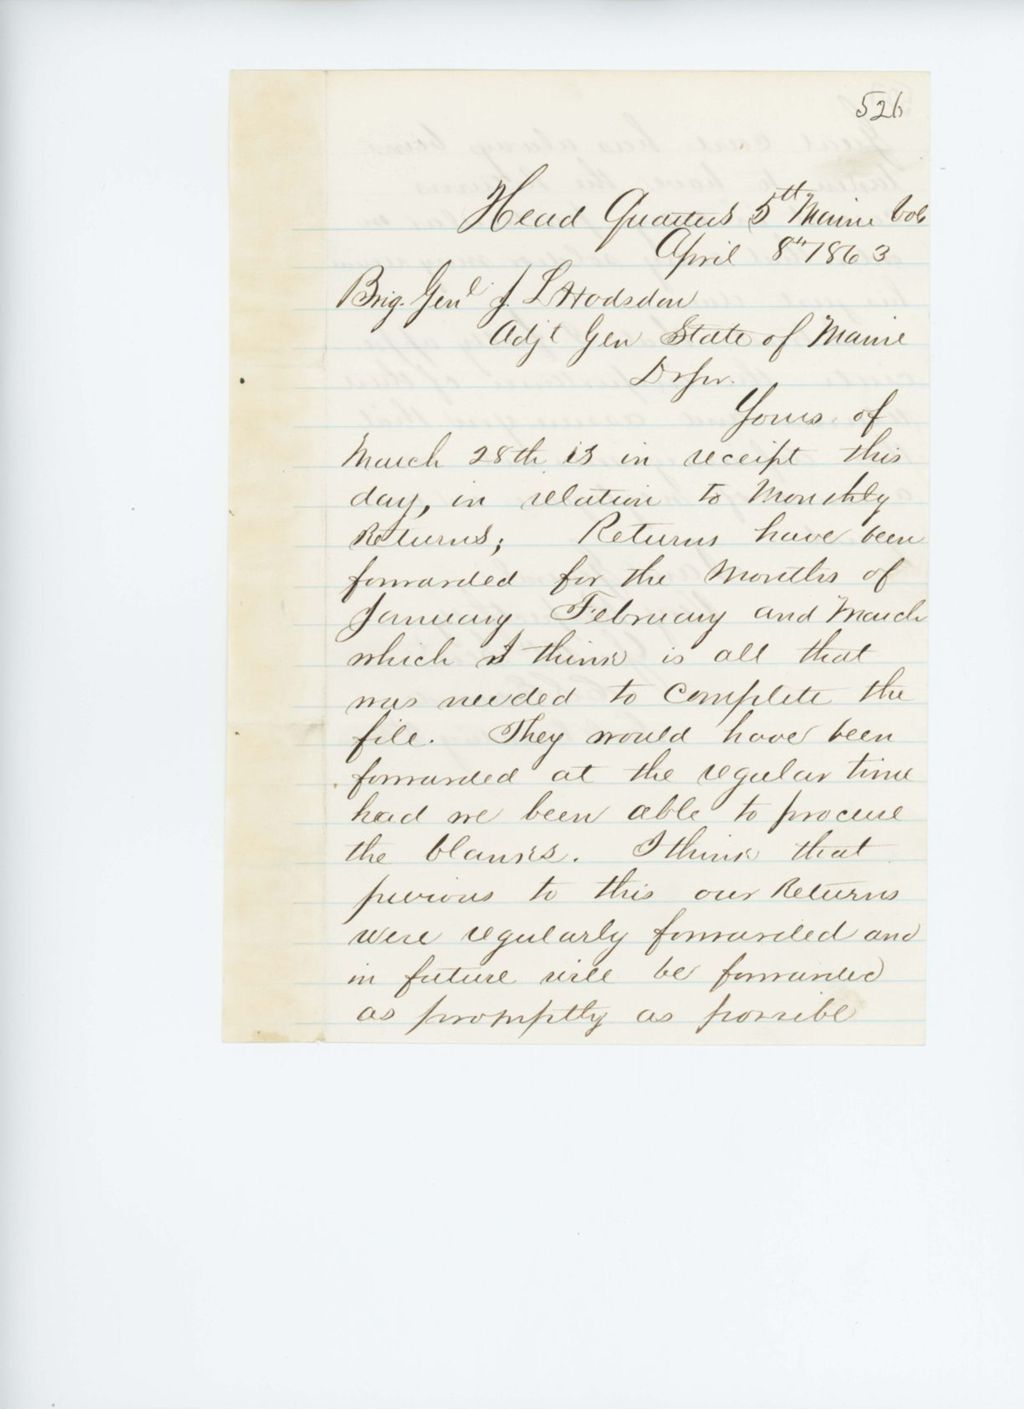 526
Head Quarters 5th Maine Vols
April 8th 1863
Brig. Genl J. L Hodsdon
Adjt Gen State of Maine
Dr Sir.
Yours of
March 28th is in receipt this
day, in relation to Monthly
Returns; Returns have been
forwarded for the Months of
January February and March
which I think is all that
was needed to Complete the
file. They would have been
forwarded at the regular time
had we been able to procure
the blanks. I think that
previous to this our Returns
were regularly forwarded and
in future will be forwarded
as promptly as possible